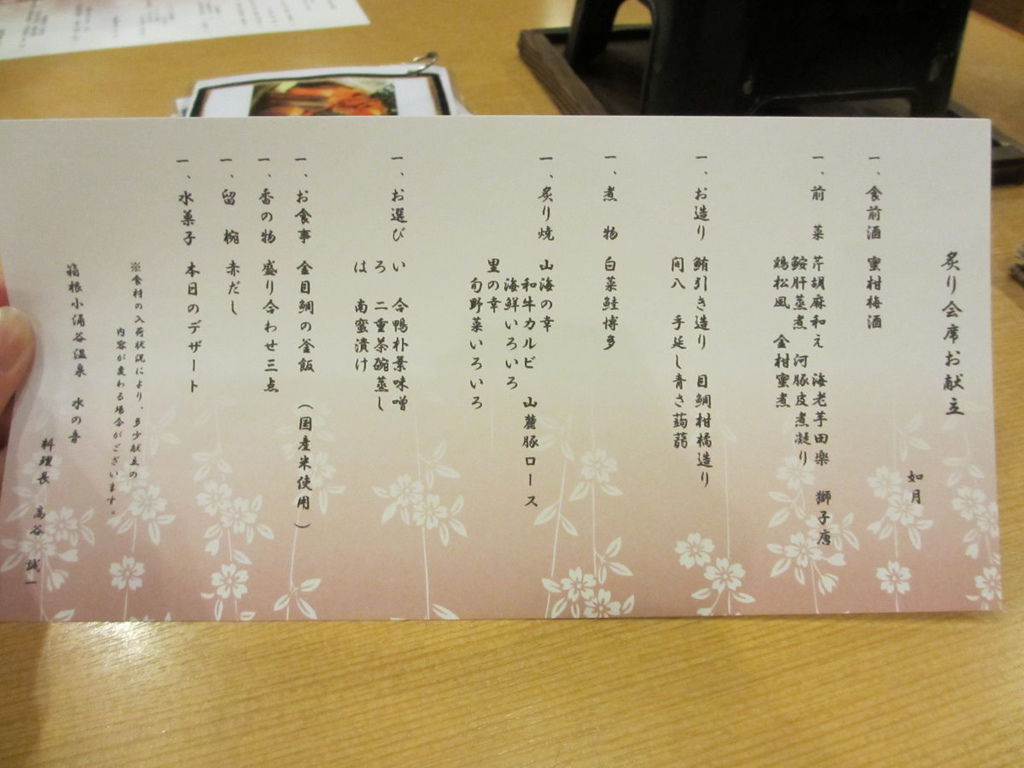 炙り会席お献立
如月
一、食前酒 蜜柑梅酒
一、前 菜 芹胡麻和え 海老芋田楽 獅子唐
鮟肝蒸煮 河豚皮煮凝り
鶏松風 金柑蜜煮
一、お造り 鮪引き造り 目鯛柑橘造り
間八 手延し青さ蒟蒻
一、煮 物 白菜鮭博多
一、炙り焼 山海の幸
和牛カルビ 山麓豚ロース
海鮮いろいろ
里の幸
旬野菜いろいろ
一、お選び い 合鴨朴葉味噌
ろ 二重茶碗蒸し
は 南蛮漬け
一、お食事 金目鯛の釜飯 （国産米使用）
一、香の物 盛り合わせ三点
一、留 椀 赤だし
一、水菓子 本日のデザート
※食材の入荷状況により、多少献立の
内容が変わる場合がございます。
箱根小涌谷温泉 水の音
料理長 高谷 誠一